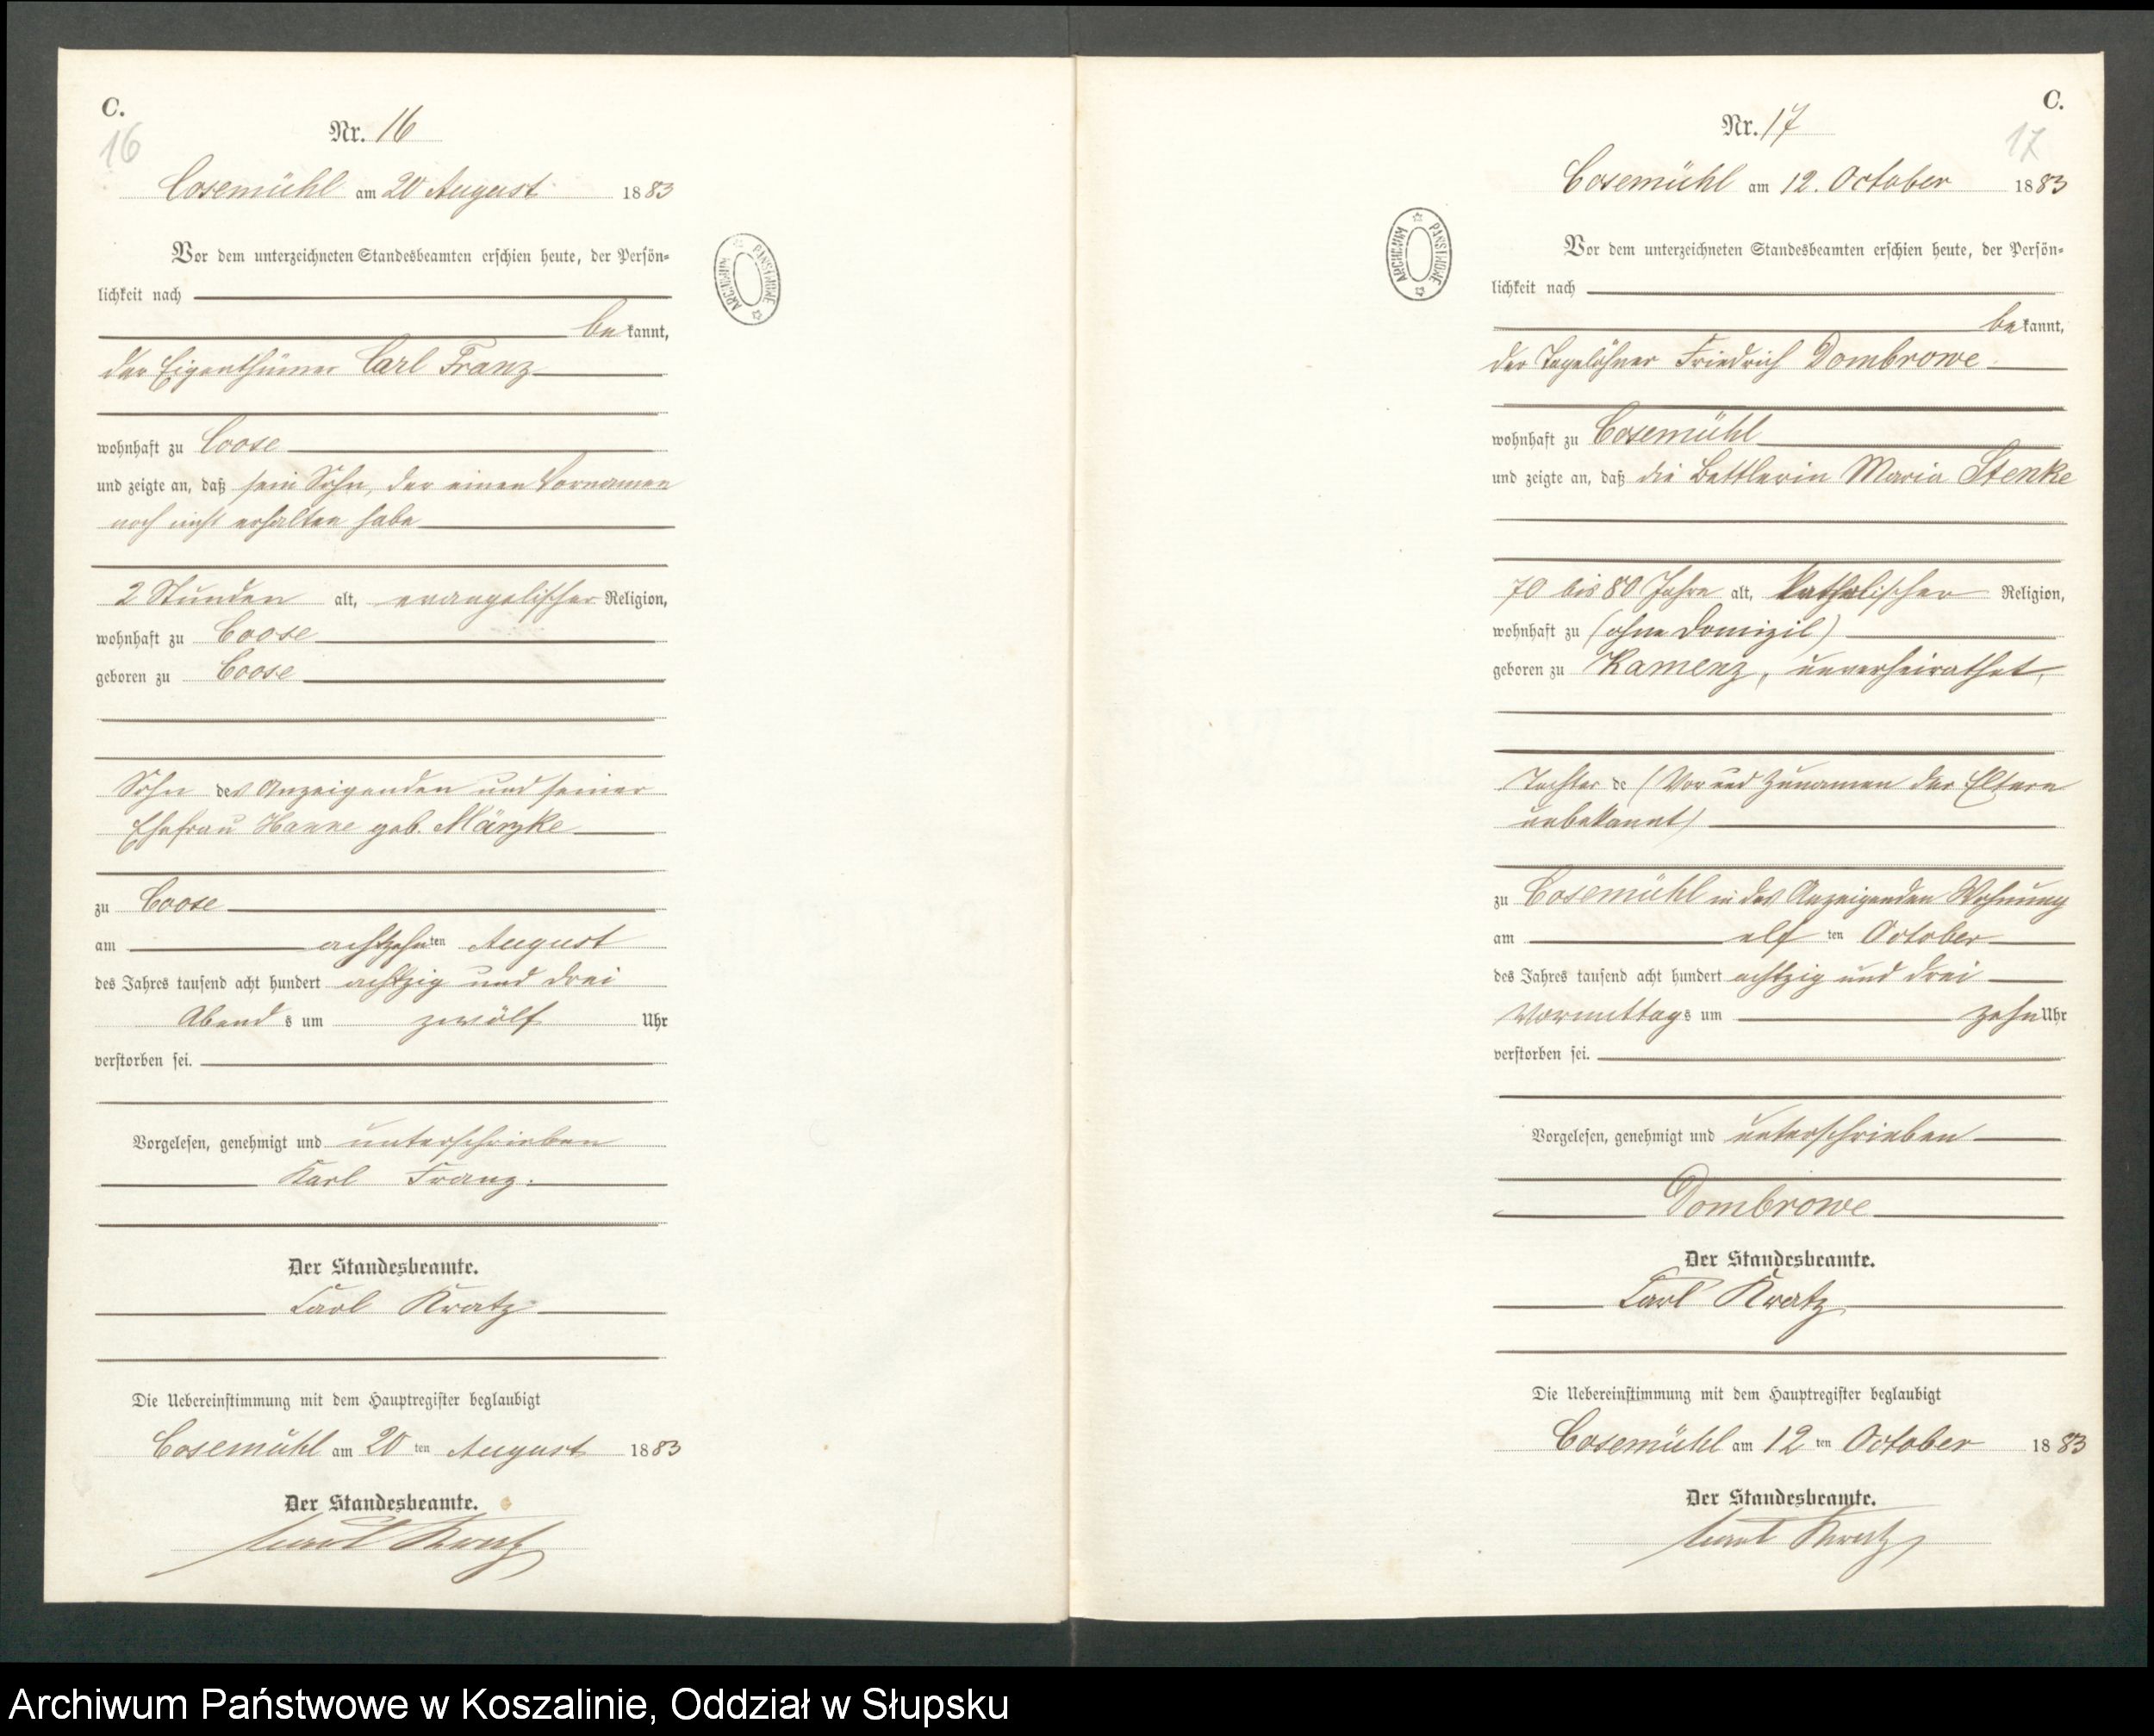 C.
16
Nr. 16
Cosemühl am 20 August 1883
Vor dem unterzeichneten Standesbeamten erschien heute, der Persön-
lichkeit nach
bekannt,
der Eigenthümer Carl Franz
wohnhaft zu Coose
und zeigte an, daß sein Sohn, der einen Vornamen
noch nicht erhalten habe
2 Stunden alt, evangelischer Religion,
wohnhaft zu Coose
geboren zu Coose
Sohn des Anzeigenden und seiner
Ehefrau Hanne geb. Märzke
zu Coose
am achtzehnten August
des Jahres tausend acht hundert achtzig und drei
Abends um zwölf Uhr
verstorben sei.
Vorgelesen, genehmigt und unterschrieben
Karl Franz.
Der Standesbeamte.
Carl Kratz
Die Uebereinstimmung mit dem Hauptregister beglaubigt
Cosemühl am 20ten August 1883
Der Standesbeamte.
Carl Kratz
ARCHIWUM PAŃSTWOWE
C.
17
Nr. 17
Cosemühl am 12. October 1883
ARCHIWUM PAŃSTWOWE
Vor dem unterzeichneten Standesbeamten erschien heute, der Persön-
lichkeit nach
bekannt,
der Tagelöhner Friedrich Dombrowe
wohnhaft zu Cosemühl
und zeigte an, daß die Bettlerin Maria Stenke
70 bis 80 Jahre alt, katholischer Religion,
wohnhaft zu (ohne Domizil)
geboren zu Kamenz, unverheirathet,
Tochter de (Vor und Zunamen der Eltern
unbekannt)
zu Cosemühl in des Anzeigenden Wohnung
am elf ten October
des Jahres tausend acht hundert achtzig und drei
Vormittags um zehn Uhr
verstorben sei.
Vorgelesen, genehmigt und unterschrieben
Dombrowe
Der Standesbeamte.
Carl Kratz
Die Uebereinstimmung mit dem Hauptregister beglaubigt
Cosemühl am 12ten October 1883
Der Standesbeamte.
Carl Kratz
Archiwum Państwowe w Koszalinie, Oddział w Słupsku